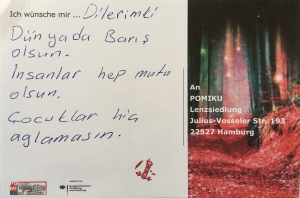 Ich wünsche mir ... Dilerimki
Dünyada Barış
olsun.
İnsanlar hep mutu
olsun.
Çocuklar hiç
aglamasın.
An
POMIKU
Lenzsiedlung
Julius-Vosseler Str. 193
22527 Hamburg